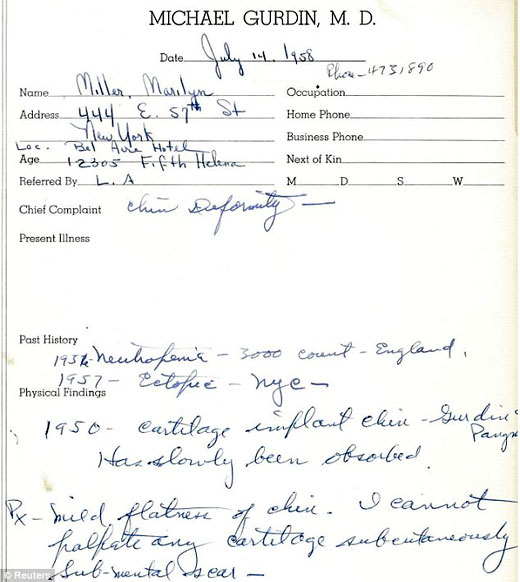 MICHAEL GURDIN, M. D.
Date July 14, 1958
Phon - 4731890
Name Miller, Marilyn Occupation
Address 444 E. 57th St Home Phone
New York Business Phone
Loc. Bel Aire Hotel Next of Kin
Age 12305 Fifth Helena
Referred By L. A M D S W
Chief Complaint chin deformity —
Present Illness
Past History
1956 - Neutropenia - 3000 count - England.
1957 - Ectopic - NYC -
Physical Findings
1950 - cartilage implant chin - Gurdin
Pangman
Has slowly been absorbed.
Px - mild flatness of chin. I cannot
palpate any cartilage subcutaneously
Sub-mental scar -
© Reuters